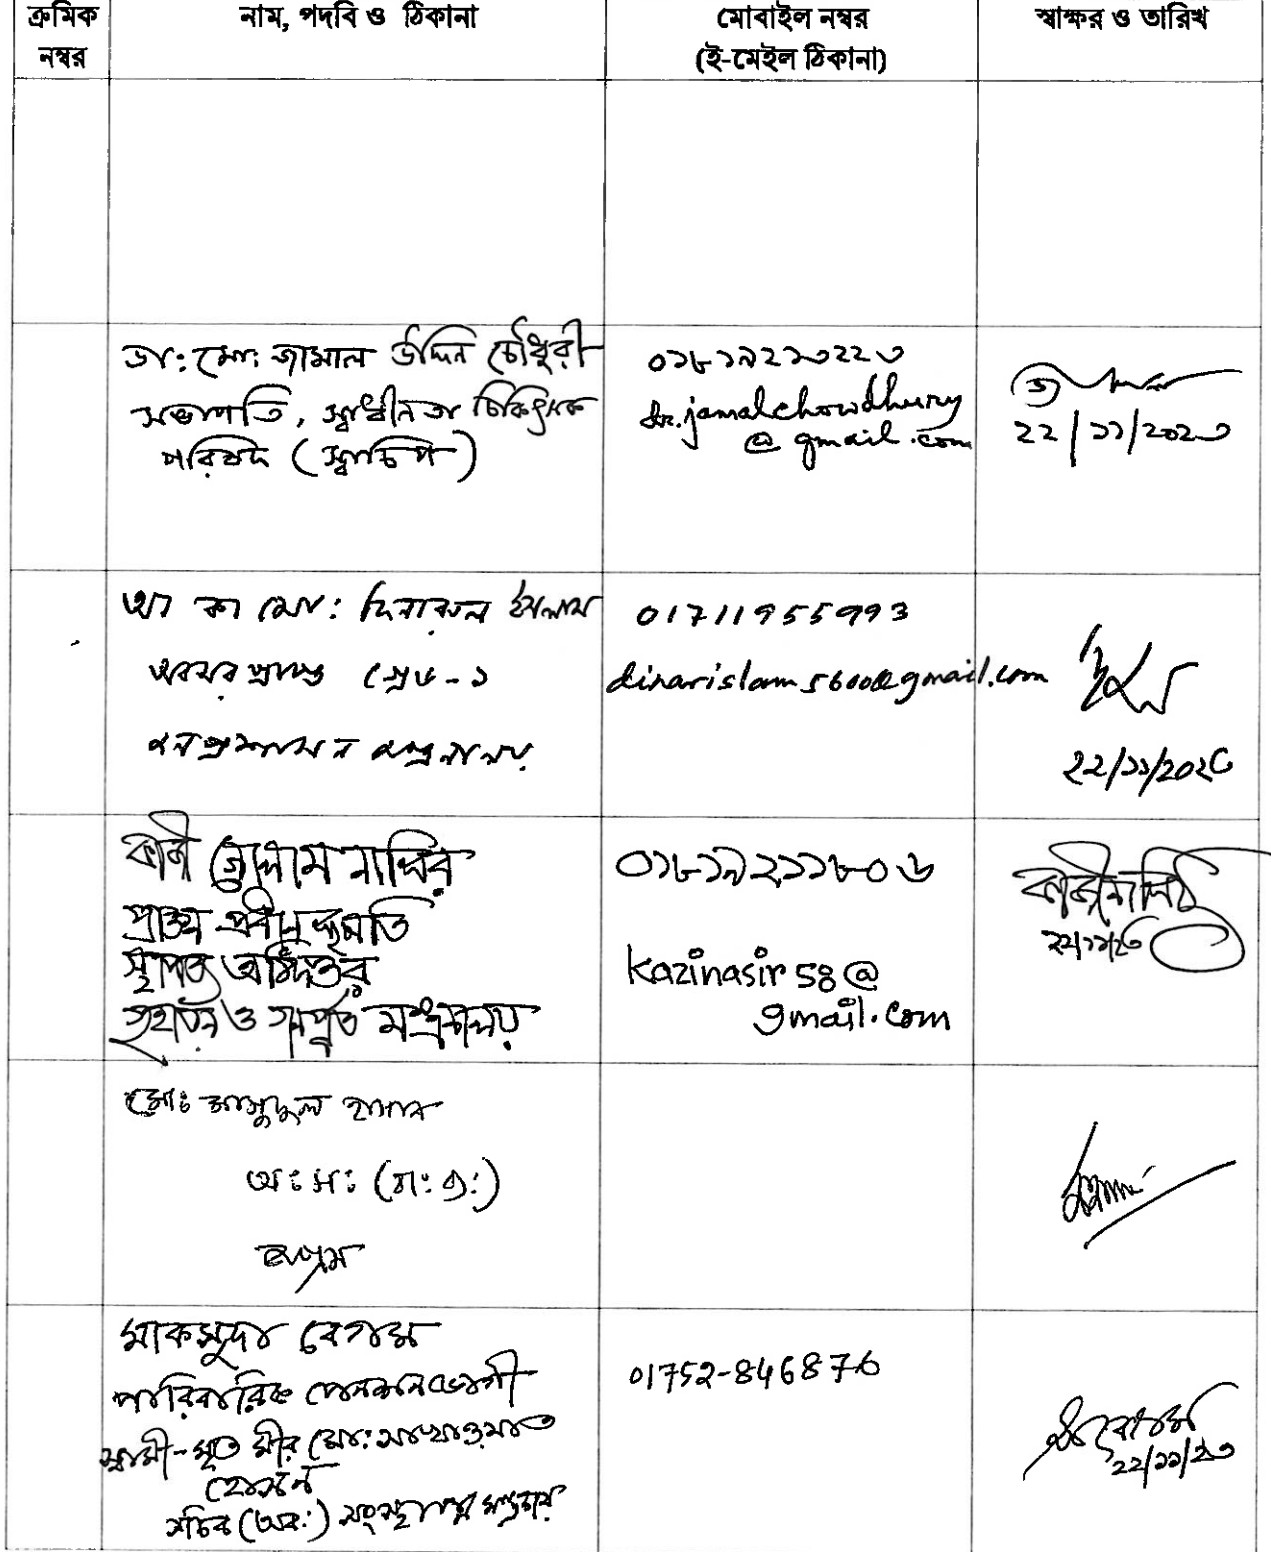 ক্রমিক নম্বর
নাম, পদবি ও ঠিকানা
মোবাইল নম্বর
(ই-মেইল ঠিকানা)
স্বাক্ষর ও তারিখ
ডা: মো: জামাল উদ্দিন চৌধুরী
সভাপতি, স্বাধীনতা চিকিৎসক
পরিষদ (স্বাচিপ)
০১৮১৯২১০২২০
dr.jamalchowdhury
@gmail.com
২২/১১/২০২৩
আ কা মো: দিনারুল ইসলাম
অবসর প্রাপ্ত গ্রেড-১
জনপ্রশাসন মন্ত্রণালয়
01711955993
dinarislam5600@gmail.com
২২/১১/২০২৩
কাজী গোলাম নাসির
প্রাক্তন প্রধান স্থপতি
স্থাপত্য অধিদপ্তর
গৃহায়ন ও গণপূর্ত মন্ত্রণালয়
০১৮১৯২১১৮০৬
kazinasir58@
gmail.com
কাজীনাসির
২২/১১/২৩
মো: মাসুদুল হাসান
অ: স: (রা: ব:)
মাকসুদা বেগম
পারিবারিক পেনশনভোগী
স্বামী-মৃত মীর মো: সাখাওয়াত
হোসেন
সচিব (অব:) সংস্থাপন মন্ত্রণালয়
01752-846876
২২/১১/২৩